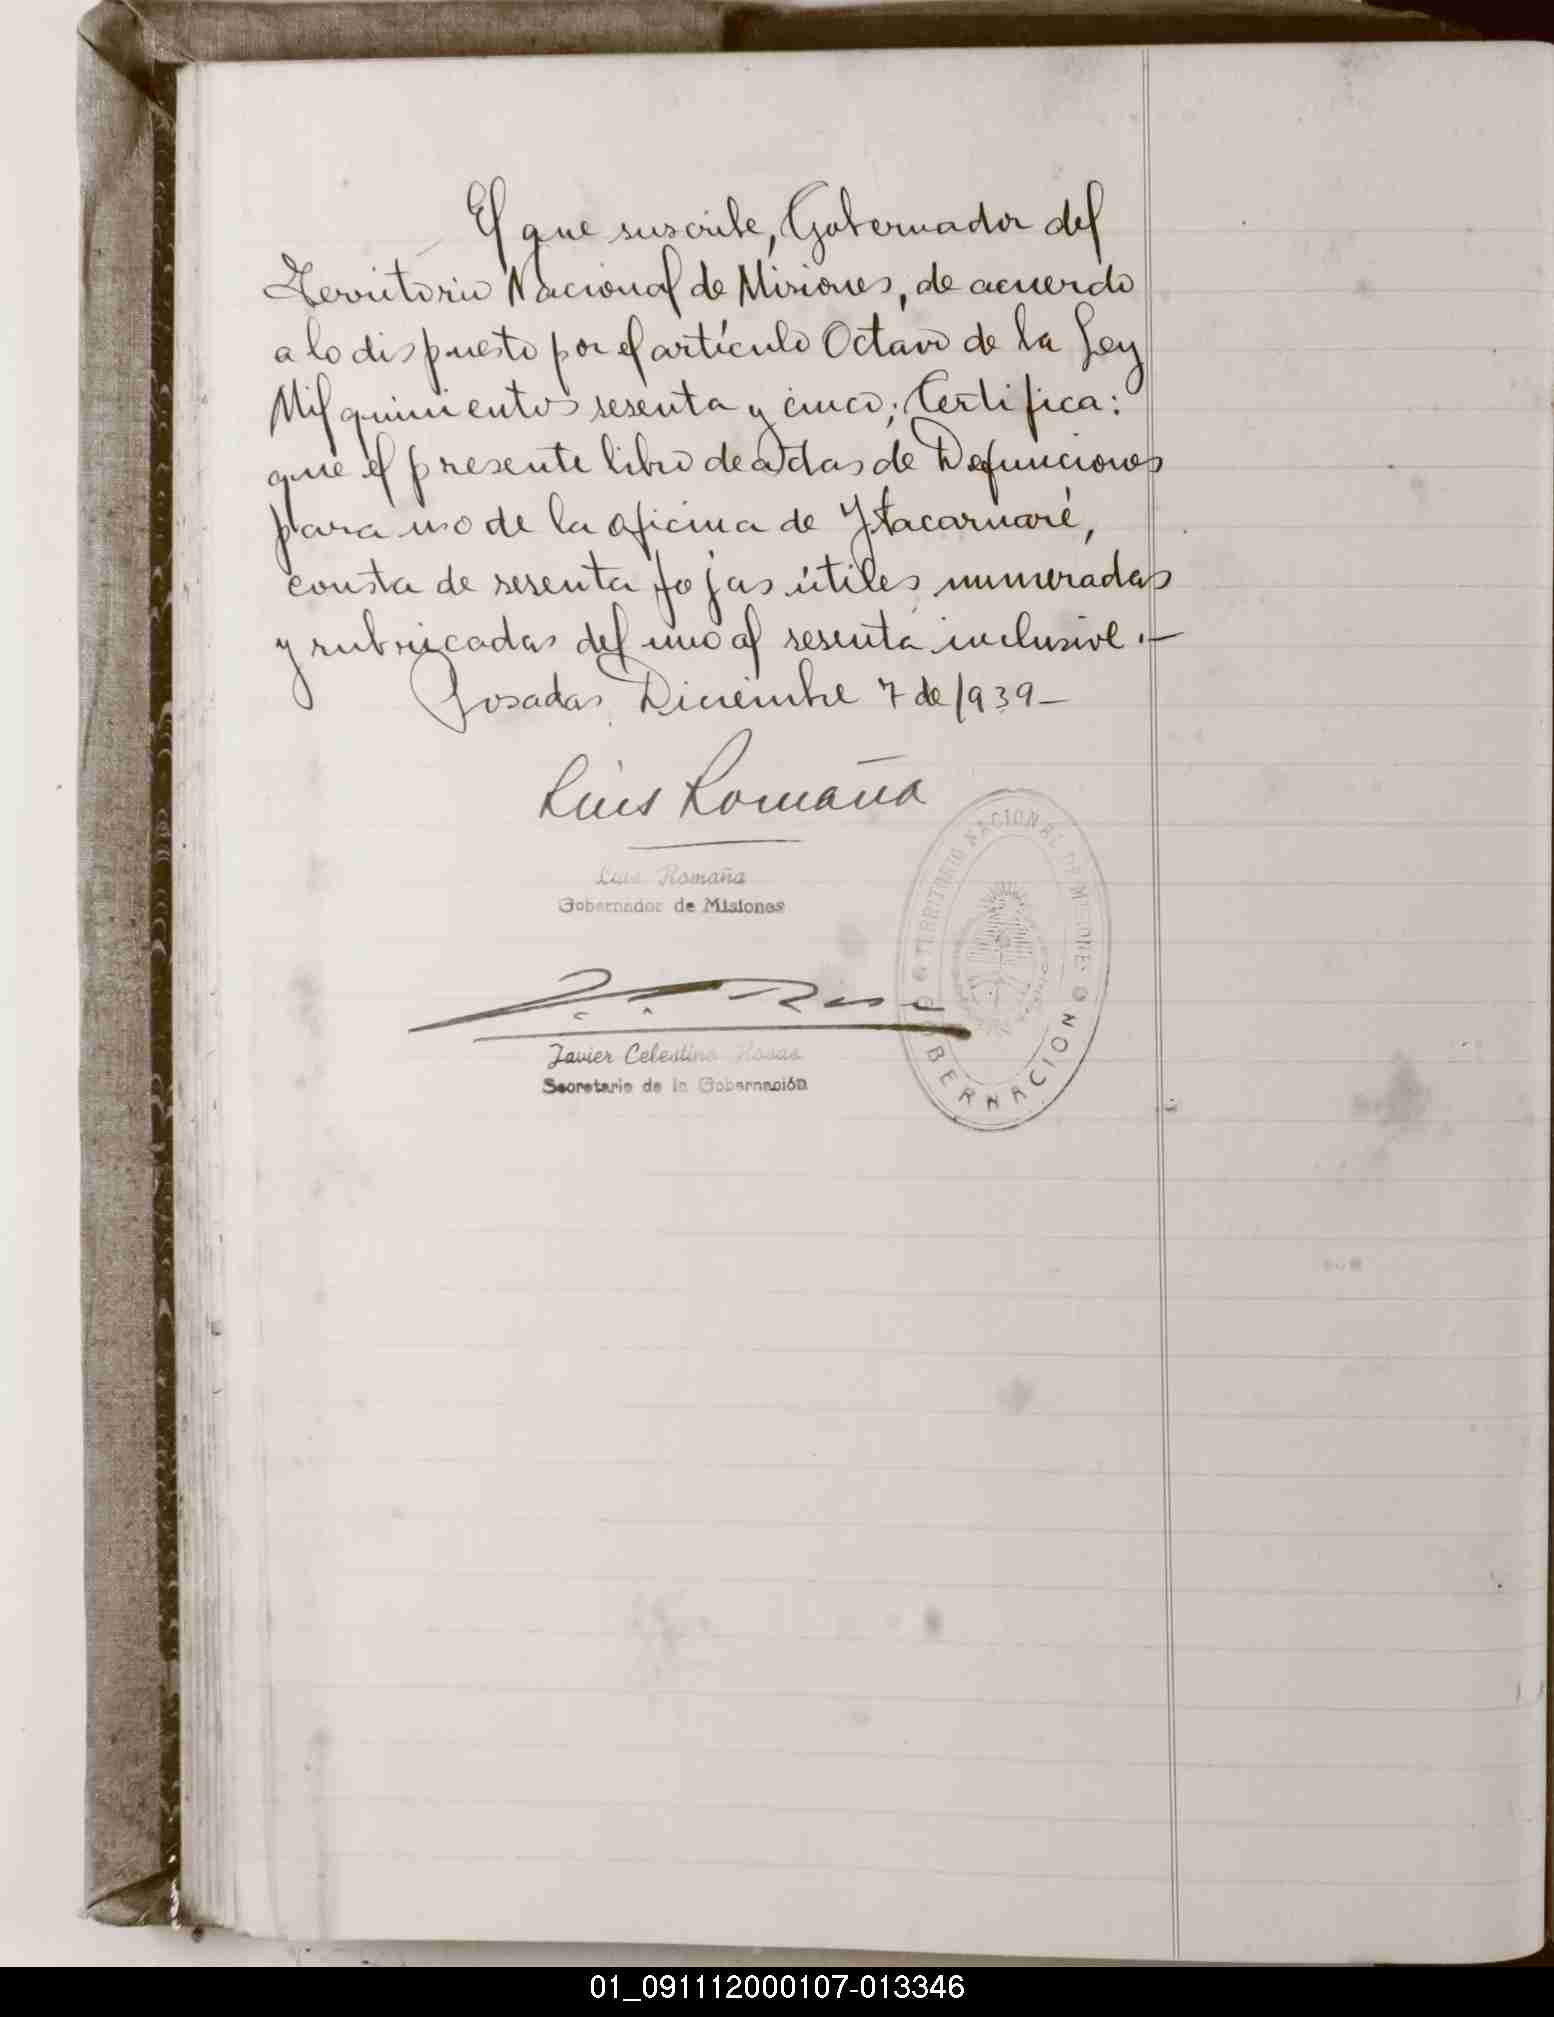 El que suscribe, Gobernador del
Territorio Nacional de Misiones, de acuerdo
a lo dispuesto por el artículo Octavo de la Ley
Mil quinientos sesenta y cinco; Certifica:
que el presente libro de actas de Defunciones
para uso de la oficina de Ytacaruaré,
consta de sesenta fojas útiles numeradas
y rubricadas del uno al sesenta inclusive.—
Posadas, Diciembre 7 de 1939—
Luis Romaña
Luis Romaña
Gobernador de Misiones
TERRITORIO NACIONAL DE MISIONES
GOBERNACION
Javier Celestino Rosas
Secretario de la Gobernación
01_091112000107-013346